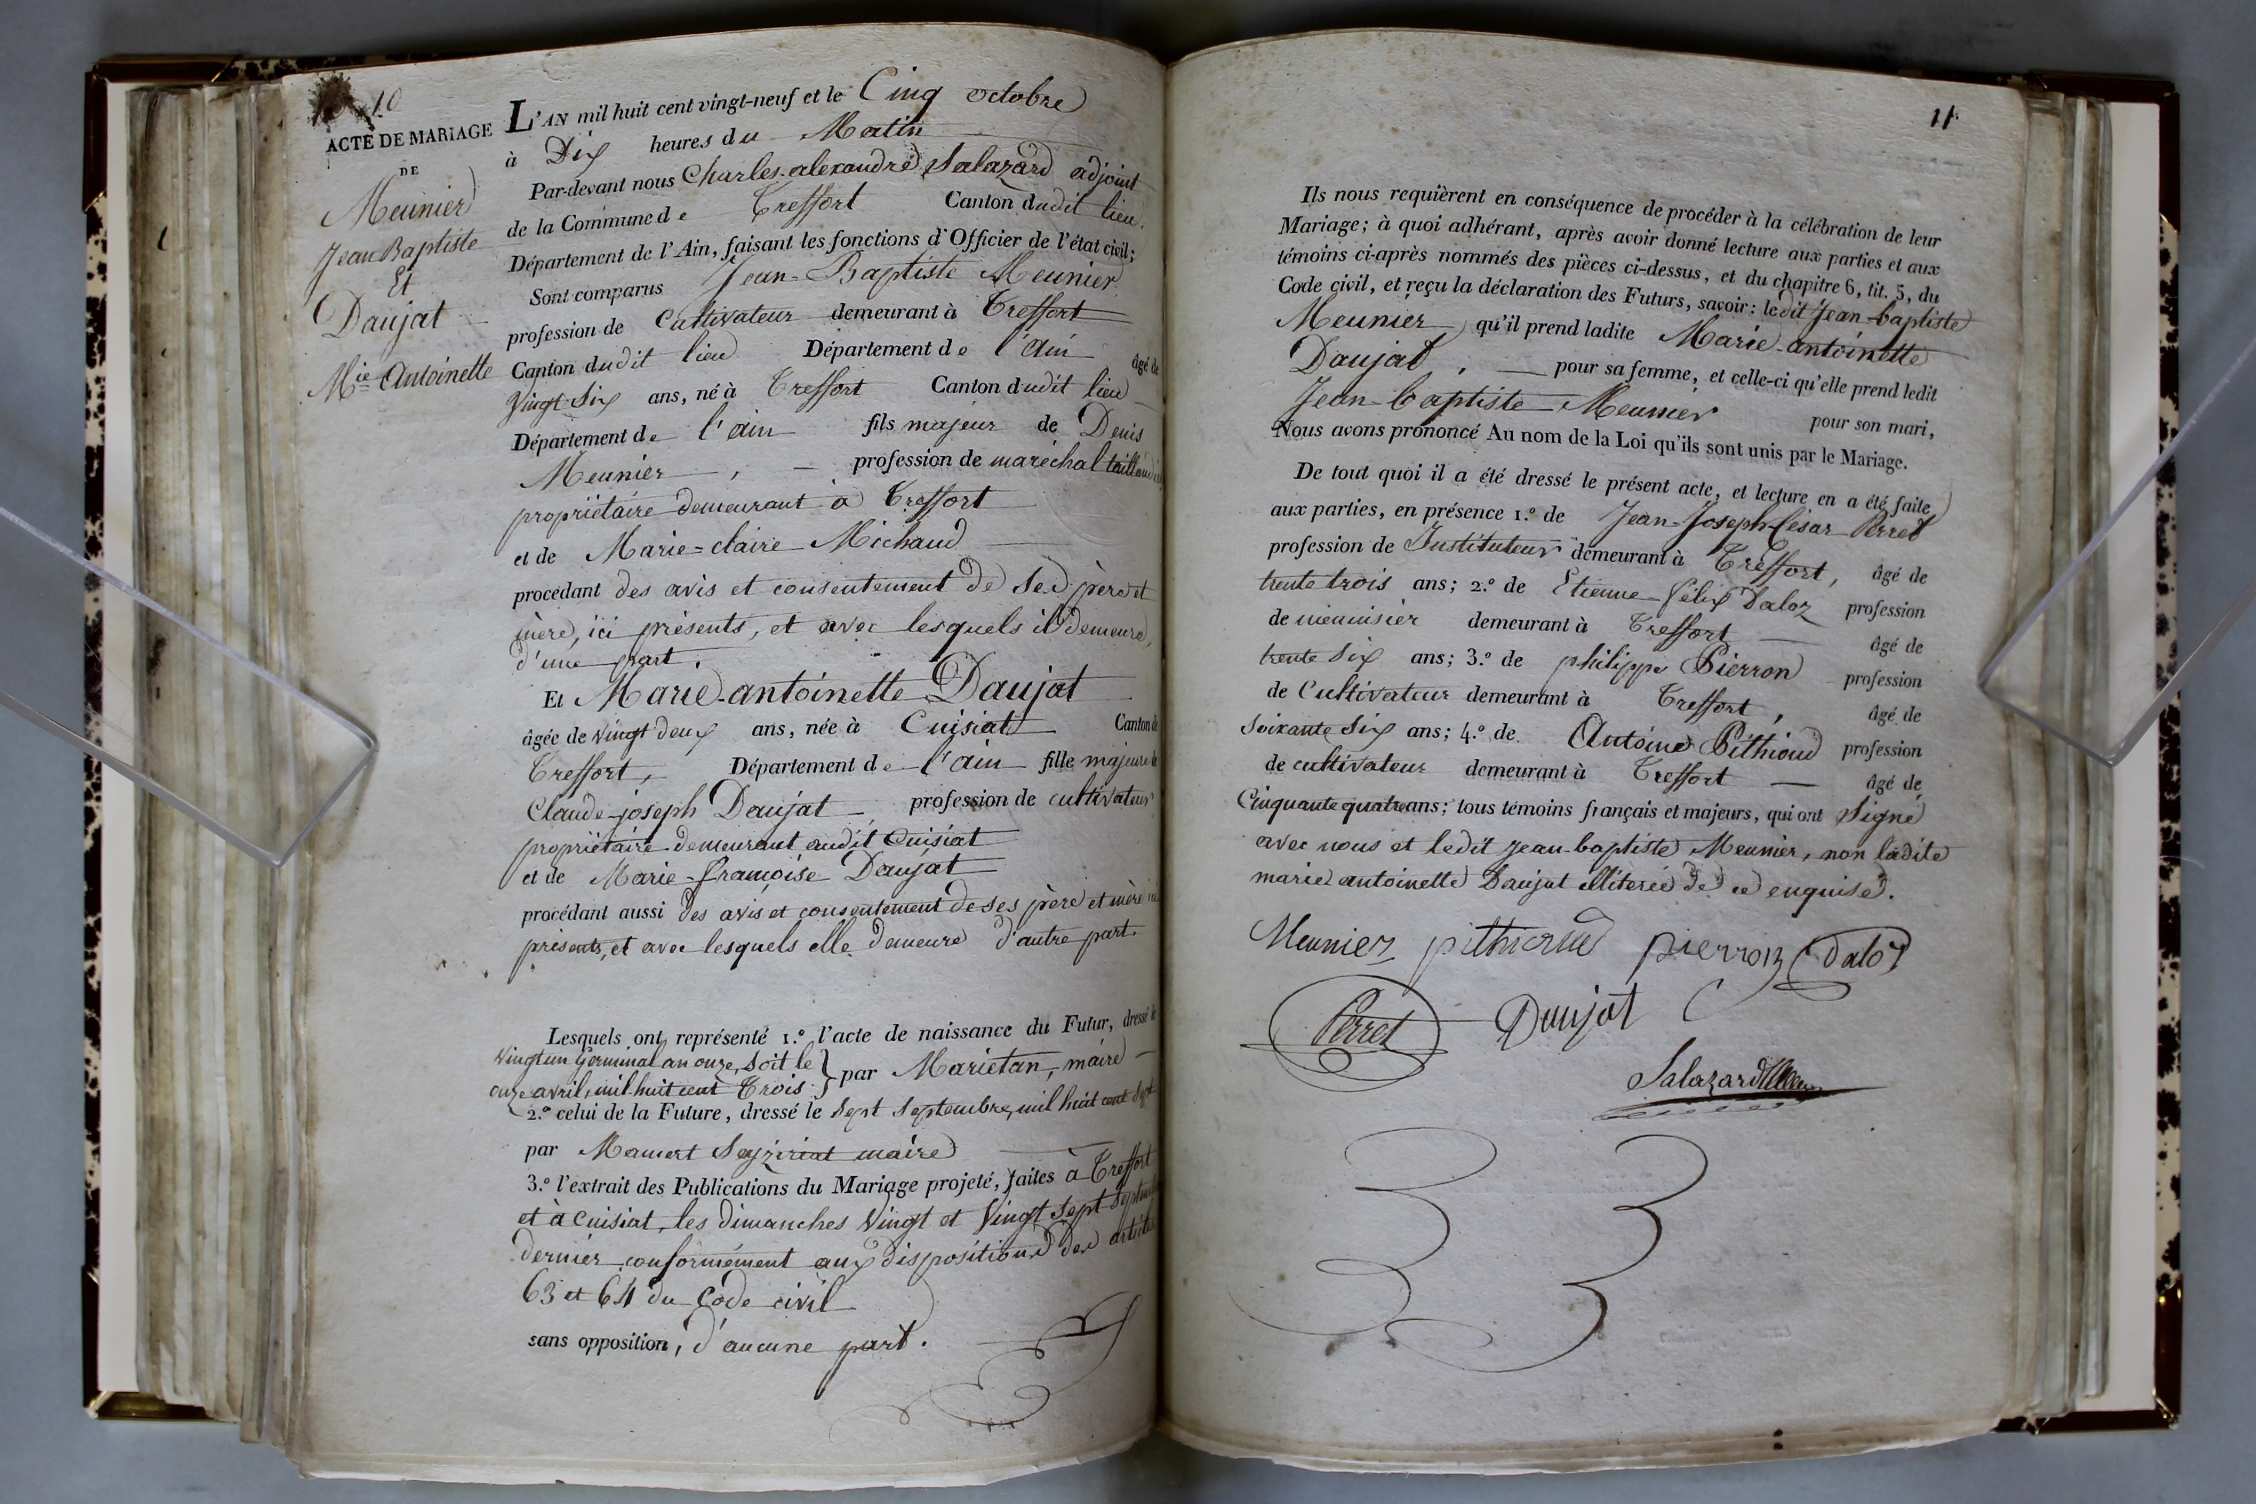 10
ACTE DE MARIAGE
DE
Meunier
Jean Baptiste
Et
Daujat
Mie Antoinette
L'AN mil huit cent vingt-neuf et le Cinq octobre
à Dix heures du Matin
Par-devant nous Charles-alexandre Salazard adjoint
de la Commune de Treffort Canton dudit lieu.
Département de l'Ain, faisant les fonctions d'Officier de l'état civil;
Sont comparus Jean-Baptiste Meunier
profession de Cultivateur demeurant à Treffort
Canton dudit lieu Département de l'Ain âgé de
Vingt Six ans, né à Treffort Canton dudit lieu
Département de l'ain fils majeur de Denis
Meunier, profession de maréchal taillandier
propriétaire demeurant à Treffort
et de Marie-claire Michaud
procédant des avis et consentement de Ses père et
mère, ici présents, et avec lesquels il demeure,
d'une part.
Et Marie-antoinette Daujat
âgée de vingt deux ans, née à Cuisiat Canton de
Treffort, Département de l'ain fille majeure de
Claude-joseph Daujat, profession de cultivateur
propriétaire demeurant audit Cuisiat
et de Marie-françoise Daujat
procédant aussi des avis et consentement de ses père et mère ici
présents, et avec lesquels elle demeure d'autre part.
Lesquels ont représenté 1.º l'acte de naissance du Futur, dressé le
Vingt un Germinal an onze, soit le
onze avril, mil huit cent Trois } par Marietan, maire
2.º celui de la Future, dressé le Sept Septembre, mil huit cent Sept
par Mamert Seyzeriat maire
3.º l'extrait des Publications du Mariage projeté, faites à Treffort
et à Cuisiat, les dimanches Vingt et Vingt Sept Septembre
dernier conformément aux dispositions des articles
63 et 64 du Code civil
sans opposition, d'aucune part.
11
Ils nous requièrent en conséquence de procéder à la célébration de leur
Mariage; à quoi adhérant, après avoir donné lecture aux parties et aux
témoins ci-après nommés des pièces ci-dessus, et du chapitre 6, tit. 5, du
Code civil, et reçu la déclaration des Futurs, savoir: ledit Jean-baptiste
Meunier qu'il prend ladite Marie-antoinette
Daujat, pour sa femme, et celle-ci qu'elle prend ledit
Jean-baptiste Meunier pour son mari,
Nous avons prononcé Au nom de la Loi qu'ils sont unis par le Mariage.
De tout quoi il a été dressé le présent acte, et lecture en a été faite
aux parties, en présence 1.º de Jean-Joseph-César Perret
profession de Instituteur demeurant à Treffort, âgé de
trente trois ans; 2.º de Etienne-félix Daloz profession
de menuisier demeurant à Treffort âgé de
trente Six ans; 3.º de philippe Pierron profession
de Cultivateur demeurant à Treffort, âgé de
Soixante Six ans; 4.º de Antoine Pithioud profession
de cultivateur demeurant à Treffort âgé de
Cinquante quatre ans; tous témoins français et majeurs, qui ont Signé
avec nous et ledit jean-baptiste Meunier, non ladite
marie antoinette Daujat illiterée de ce enquise.
Meunier pithioud pierron Daloz
Perret Daujat
Salazard